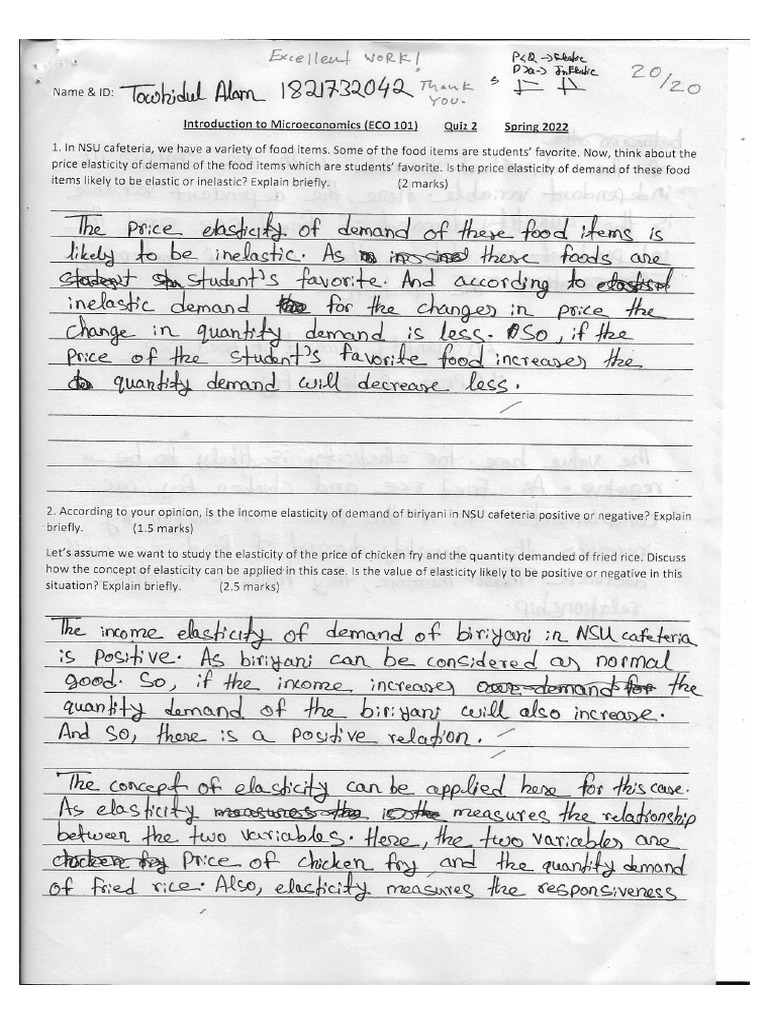 Excellent WORK!
P<Q → Elastic
P>Q → InElastic
20/20
Name & ID: Towhidul Alam 1821732042 Thank
You.
Introduction to Microeconomics (ECO 101) Quiz 2 Spring 2022
1. In NSU cafeteria, we have a variety of food items. Some of the food items are students' favorite. Now, think about the
price elasticity of demand of the food items which are students' favorite. Is the price elasticity of demand of these food
items likely to be elastic or inelastic? Explain briefly. (2 marks)
The price elasticity of demand of these food items is
likely to be inelastic. As these foods are
student's favorite. And according to
inelastic demand for the changes in price the
change in quantity demand is less. So, if the
price of the student's favorite food increases the
quantity demand will decrease less.
2. According to your opinion, is the income elasticity of demand of biriyani in NSU cafeteria positive or negative? Explain
briefly. (1.5 marks)
Let's assume we want to study the elasticity of the price of chicken fry and the quantity demanded of fried rice. Discuss
how the concept of elasticity can be applied in this case. Is the value of elasticity likely to be positive or negative in this
situation? Explain briefly. (2.5 marks)
The income elasticity of demand of biriyani in NSU cafeteria
is positive. As biriyani can be considered as normal
good. So, if the income increases our demand for the
quantity demand of the biriyani will also increase.
And so, there is a positive relation.
The concept of elasticity can be applied here for this case.
As elasticity measures the is the measures the relationship
between the two variables. Here, the two variables are
chicken fry price of chicken fry and the quantity demand
of fried rice. Also, elasticity measures the responsiveness